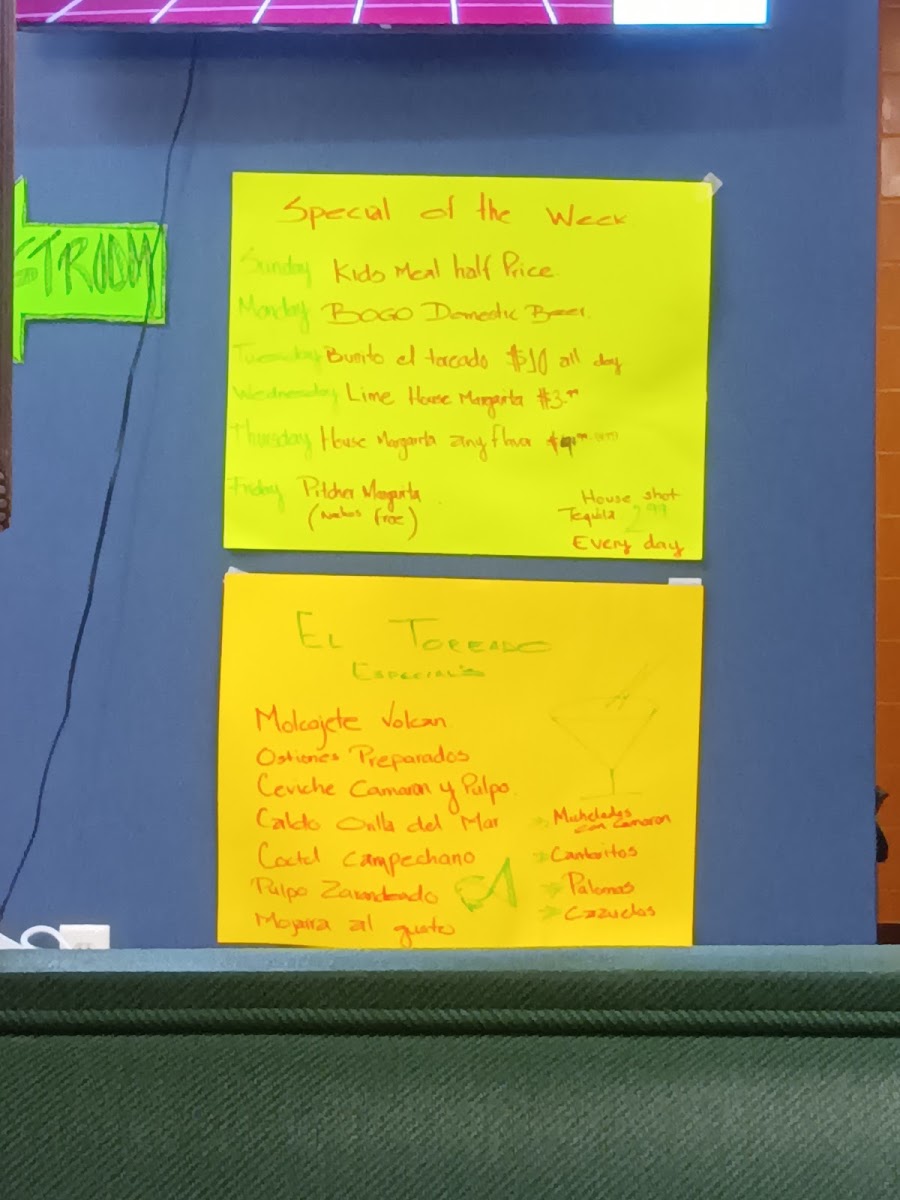 STRODAY
Special of the Week
Sunday Kids Meal half Price.
Monday BOGO Domestic Beer.
Tuesday Burrito el toreado $10 all day
Wednesday Lime House Margarita $3.99
Thursday House Margarita any flavor
Friday Pitcher Margarita
(Nachos free)
House shot
Tequila 2.99
Every day
El Toreado
Especial's
Molcajete Volcan
Ostiones Preparados
Ceviche Camaron y Pulpo.
Caldo Orilla del Mar
Coctel Campechano
Pulpo Zarandeado
Mojarra al gusto
Micheladas
con camaron
Cantaritos
Palomas
Cazuelas